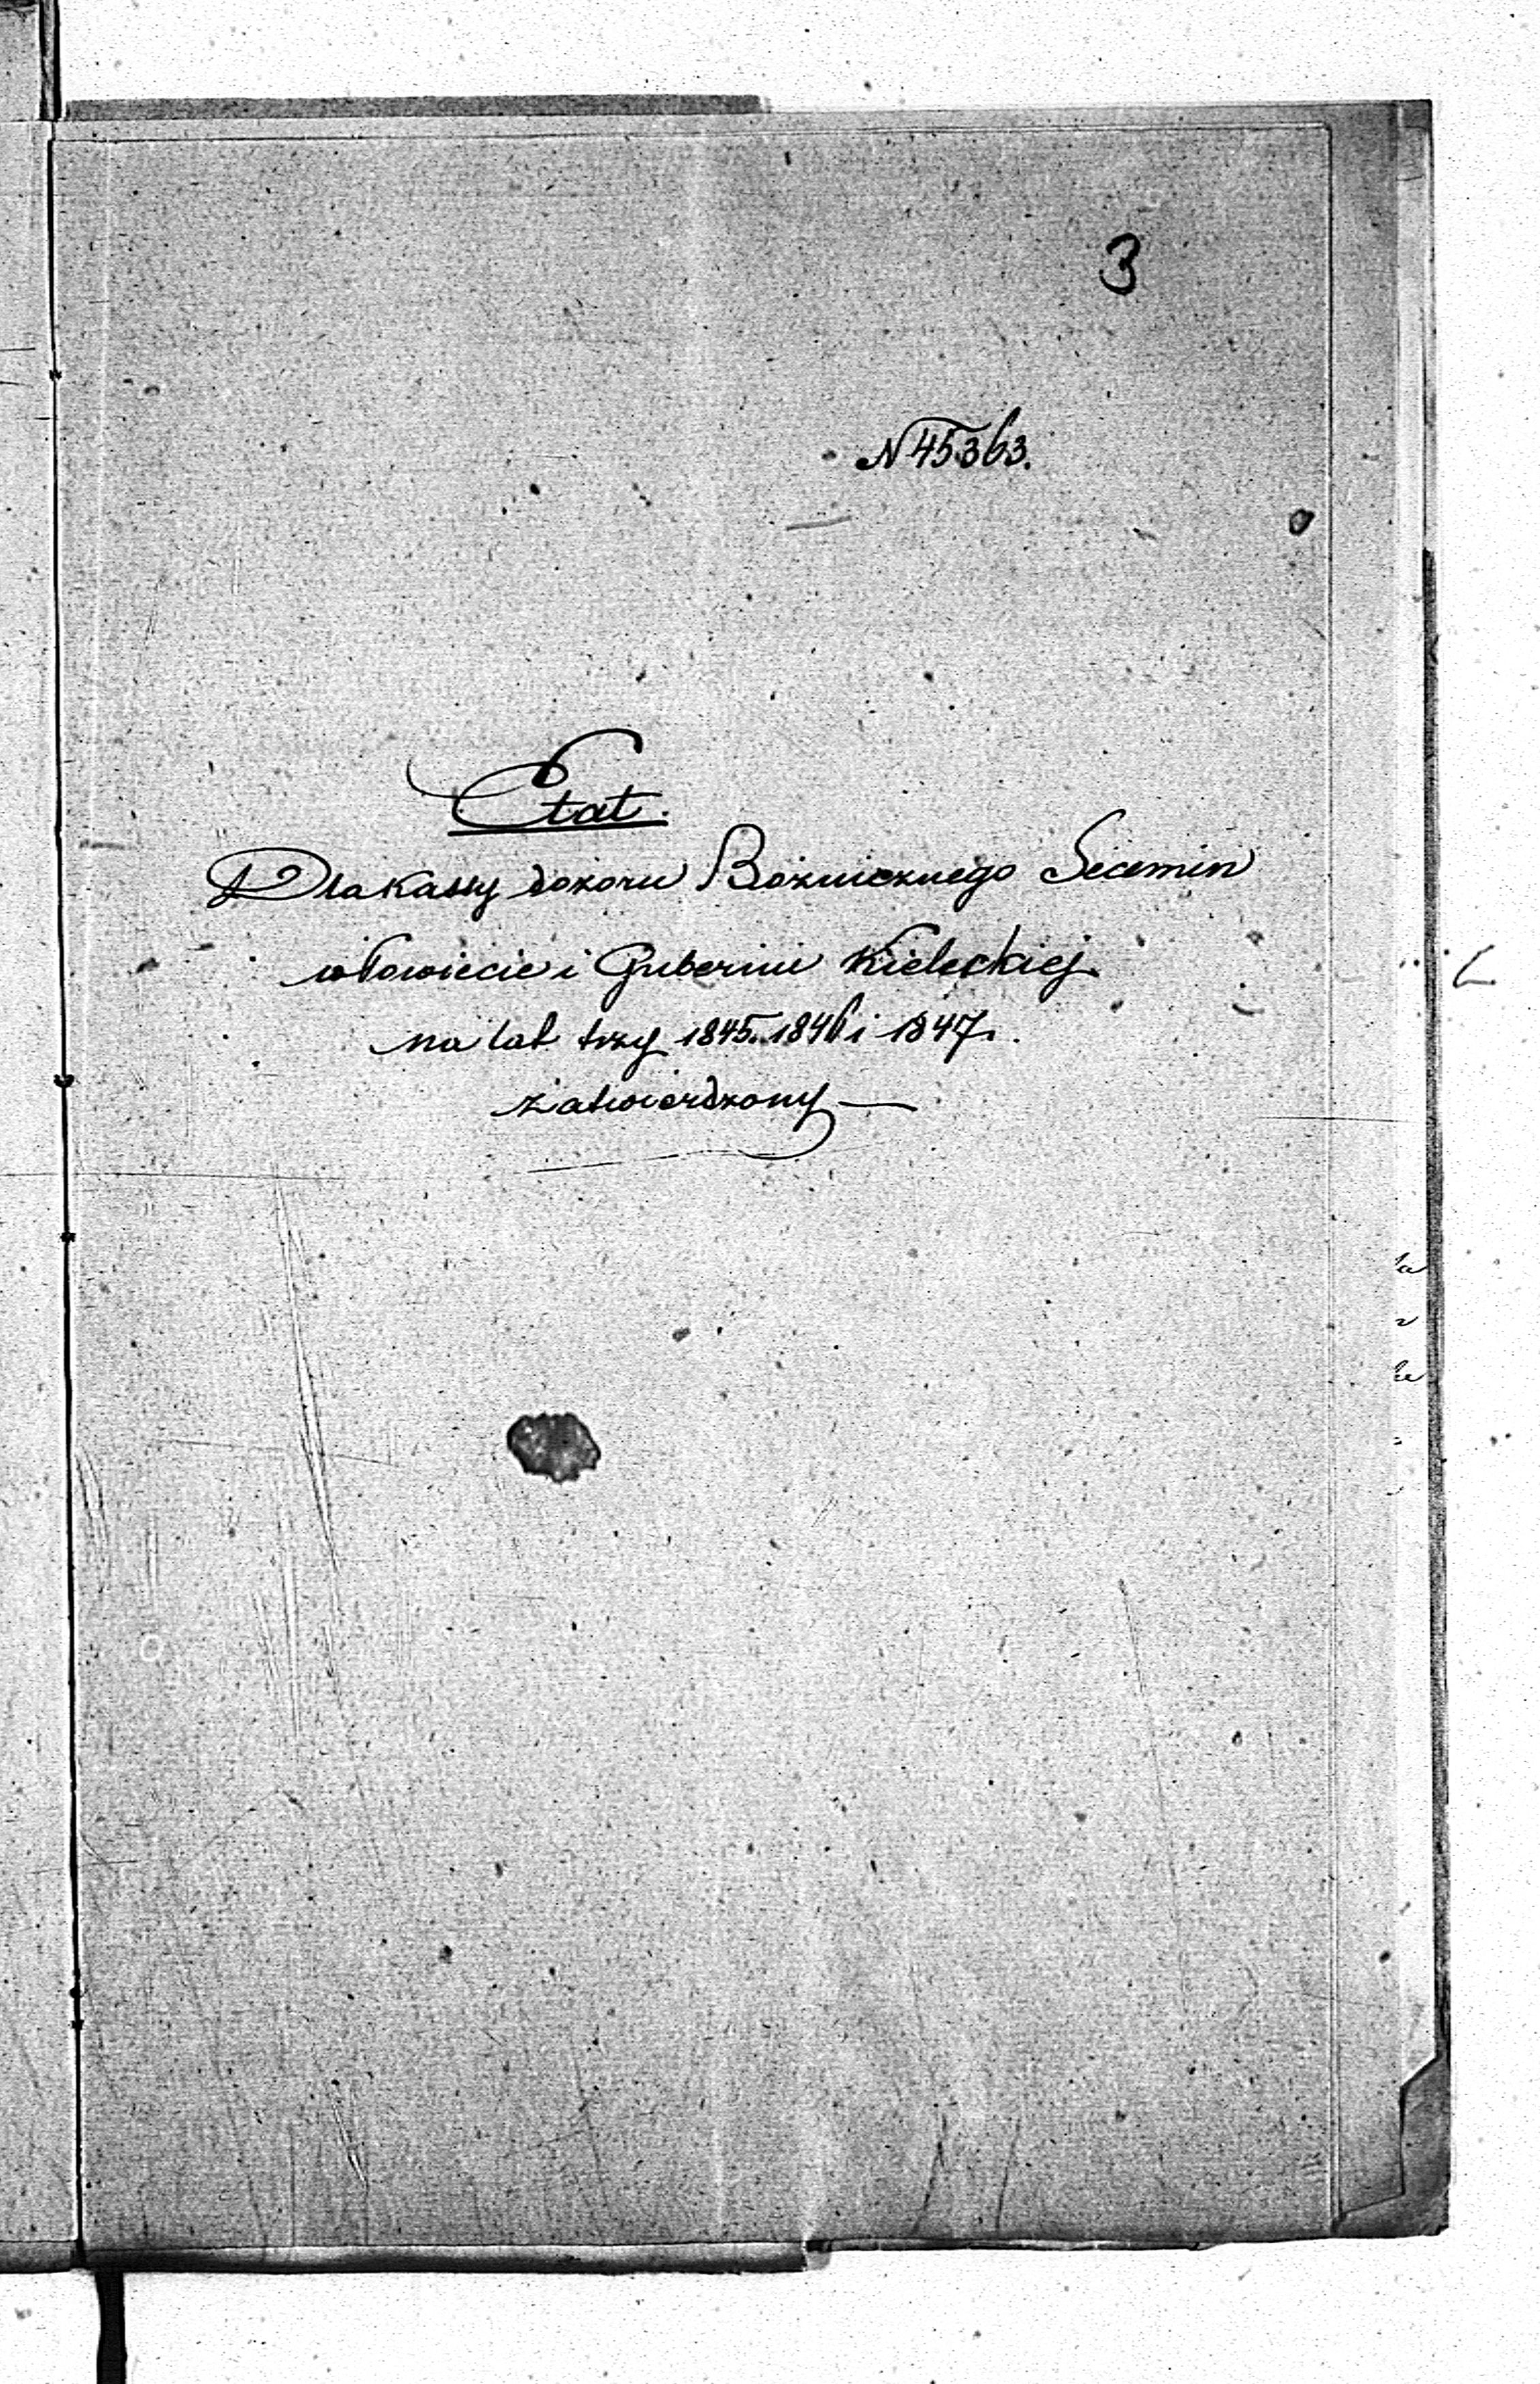 3
N 45363.
Etat.
Dla Kassy dozoru Bożniczego Secemin
w Powiecie i Gubernii Kieleckiej
na lat trzy 1845. 1846 i 1847.
zatwierdzony —